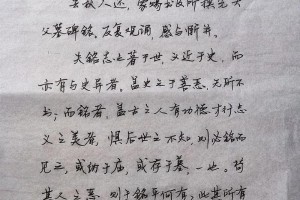 去秋人还,蒙赐书及所撰先大
父墓碑铭,反复观诵,感与惭并。
夫铭志之著于世,义近于史,而
亦有与史异者。盖史之于善恶,无所不
书,而铭者,盖古之人有功德材行志
义之美者,惧后世之不知,则必铭而
见之,或纳于庙,或存于墓,一也。苟
其人之恶,则于铭乎何有?此其所